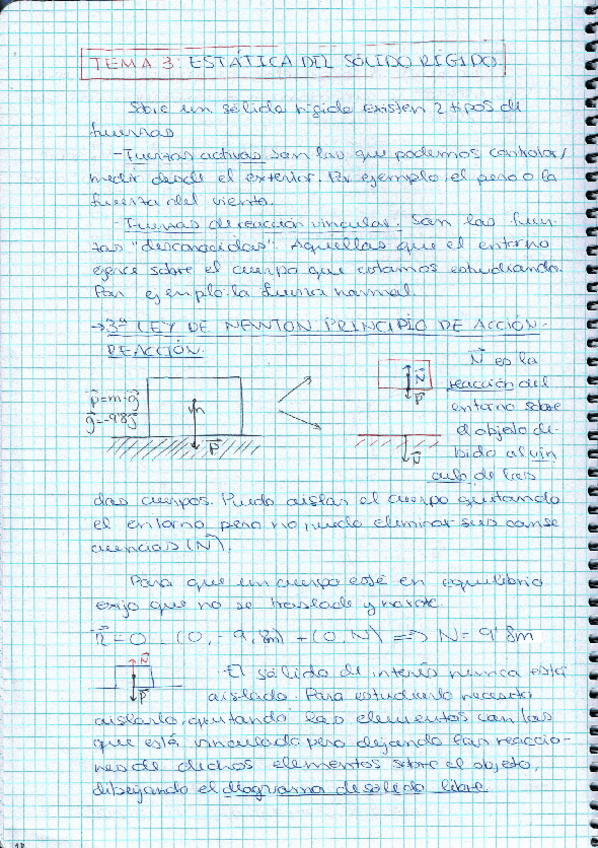 TEMA 3: ESTÁTICA DEL SÓLIDO RÍGIDO
Sobre un sólido rígido existen 2 tipos de
fuerzas
-Fuerzas activas son las que podemos controlar/
medir desde el exterior. Por ejemplo, el peso o la
fuerza del viento.
-Fuerzas de reacción vincular: Son las fuer-
zas "desconocidas". Aquellas que el entorno
ejerce sobre el cuerpo que estamos estudiando.
Por ejemplo: la fuerza normal.
→3ª LEY DE NEWTON PRINCIPIO DE ACCIÓN-
REACCIÓN.
p=m·g
g=-9'8j
P
N
P
N
N es la
reacción del
entorno sobre
el objeto de-
bido al vín
culo de los
dos cuerpos. Puedo aislar el cuerpo quitando
el entorno pero no puedo eliminar sus conse
cuencias (N).
Para que un cuerpo esté en equilibrio
exijo que no se traslade y no rote.
R = 0 (0,-9,8m) + (0,N) => N = 9'8m
N
P
El sólido de interés nunca está
aislado. Para estudiarlo necesito
aislarlo, quitando los elementos con los
que está vinculado pero dejando las reaccio-
nes de dichos elementos sobre el objeto,
dibujando el diagrama de sólido libre.